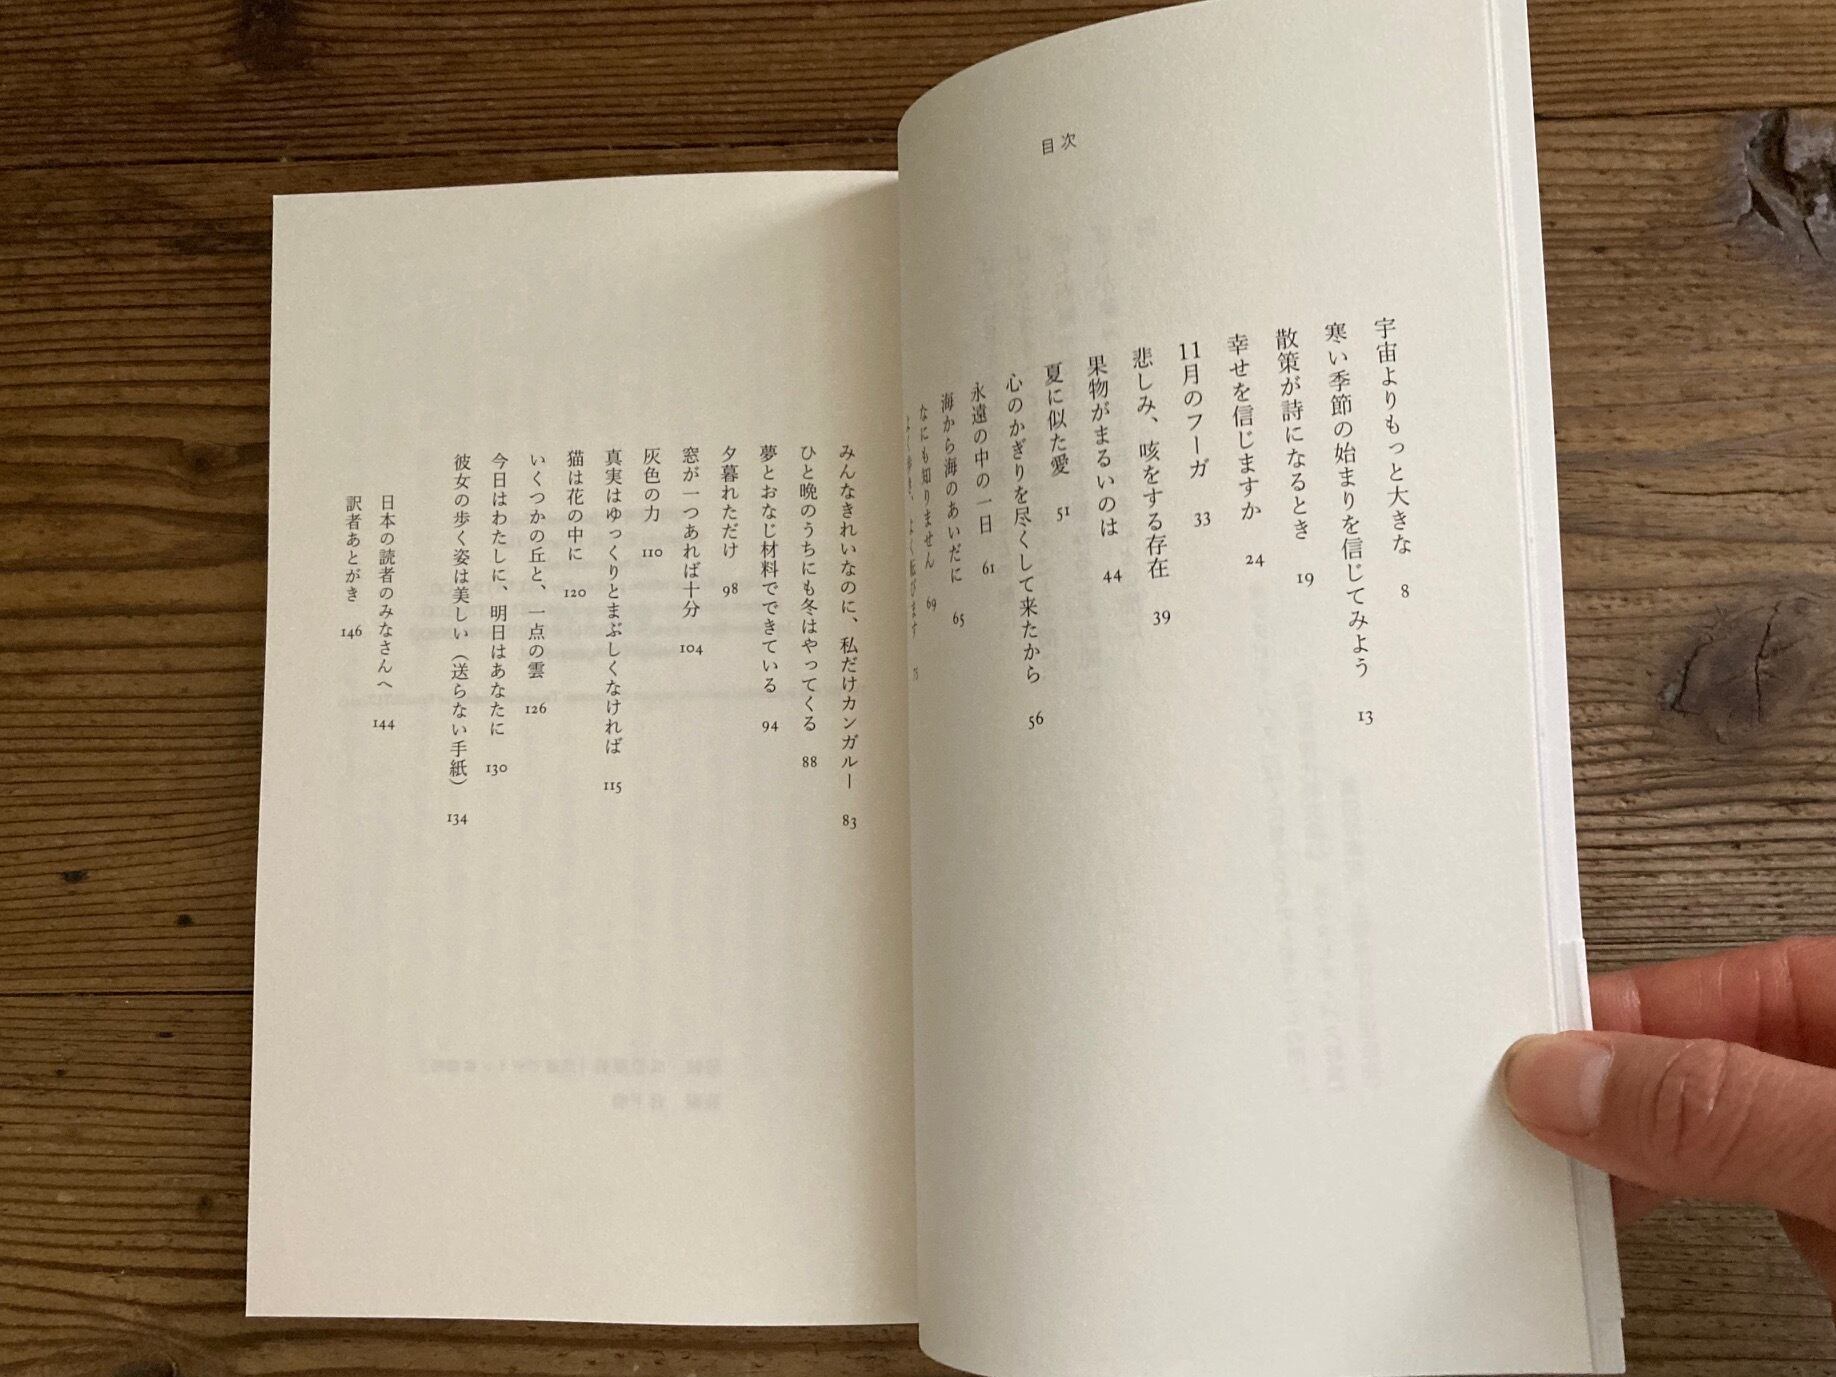 目次
宇宙よりもっと大きな 8
寒い季節の始まりを信じてみよう 13
散策が詩になるとき 19
幸せを信じますか 24
11月のフーガ 33
悲しみ、咳をする存在 39
果物がまるいのは 44
夏に似た愛 51
心のかぎりを尽くして来たから 56
永遠の中の一日 61
海から海のあいだに 65
なにも知りません 69
よく歩き、よく転びます 75
みんなきれいなのに、私だけカンガルー 83
ひと晩のうちにも冬はやってくる 88
夢とおなじ材料でできている 94
夕暮れただけ 98
窓が一つあれば十分 104
灰色の力 110
真実はゆっくりとまぶしくなければ 115
猫は花の中に 120
いくつかの丘と、一点の雲 126
今日はわたしに、明日はあなたに 130
彼女の歩く姿は美しい（送らない手紙） 134
日本の読者のみなさんへ 144
訳者あとがき 146